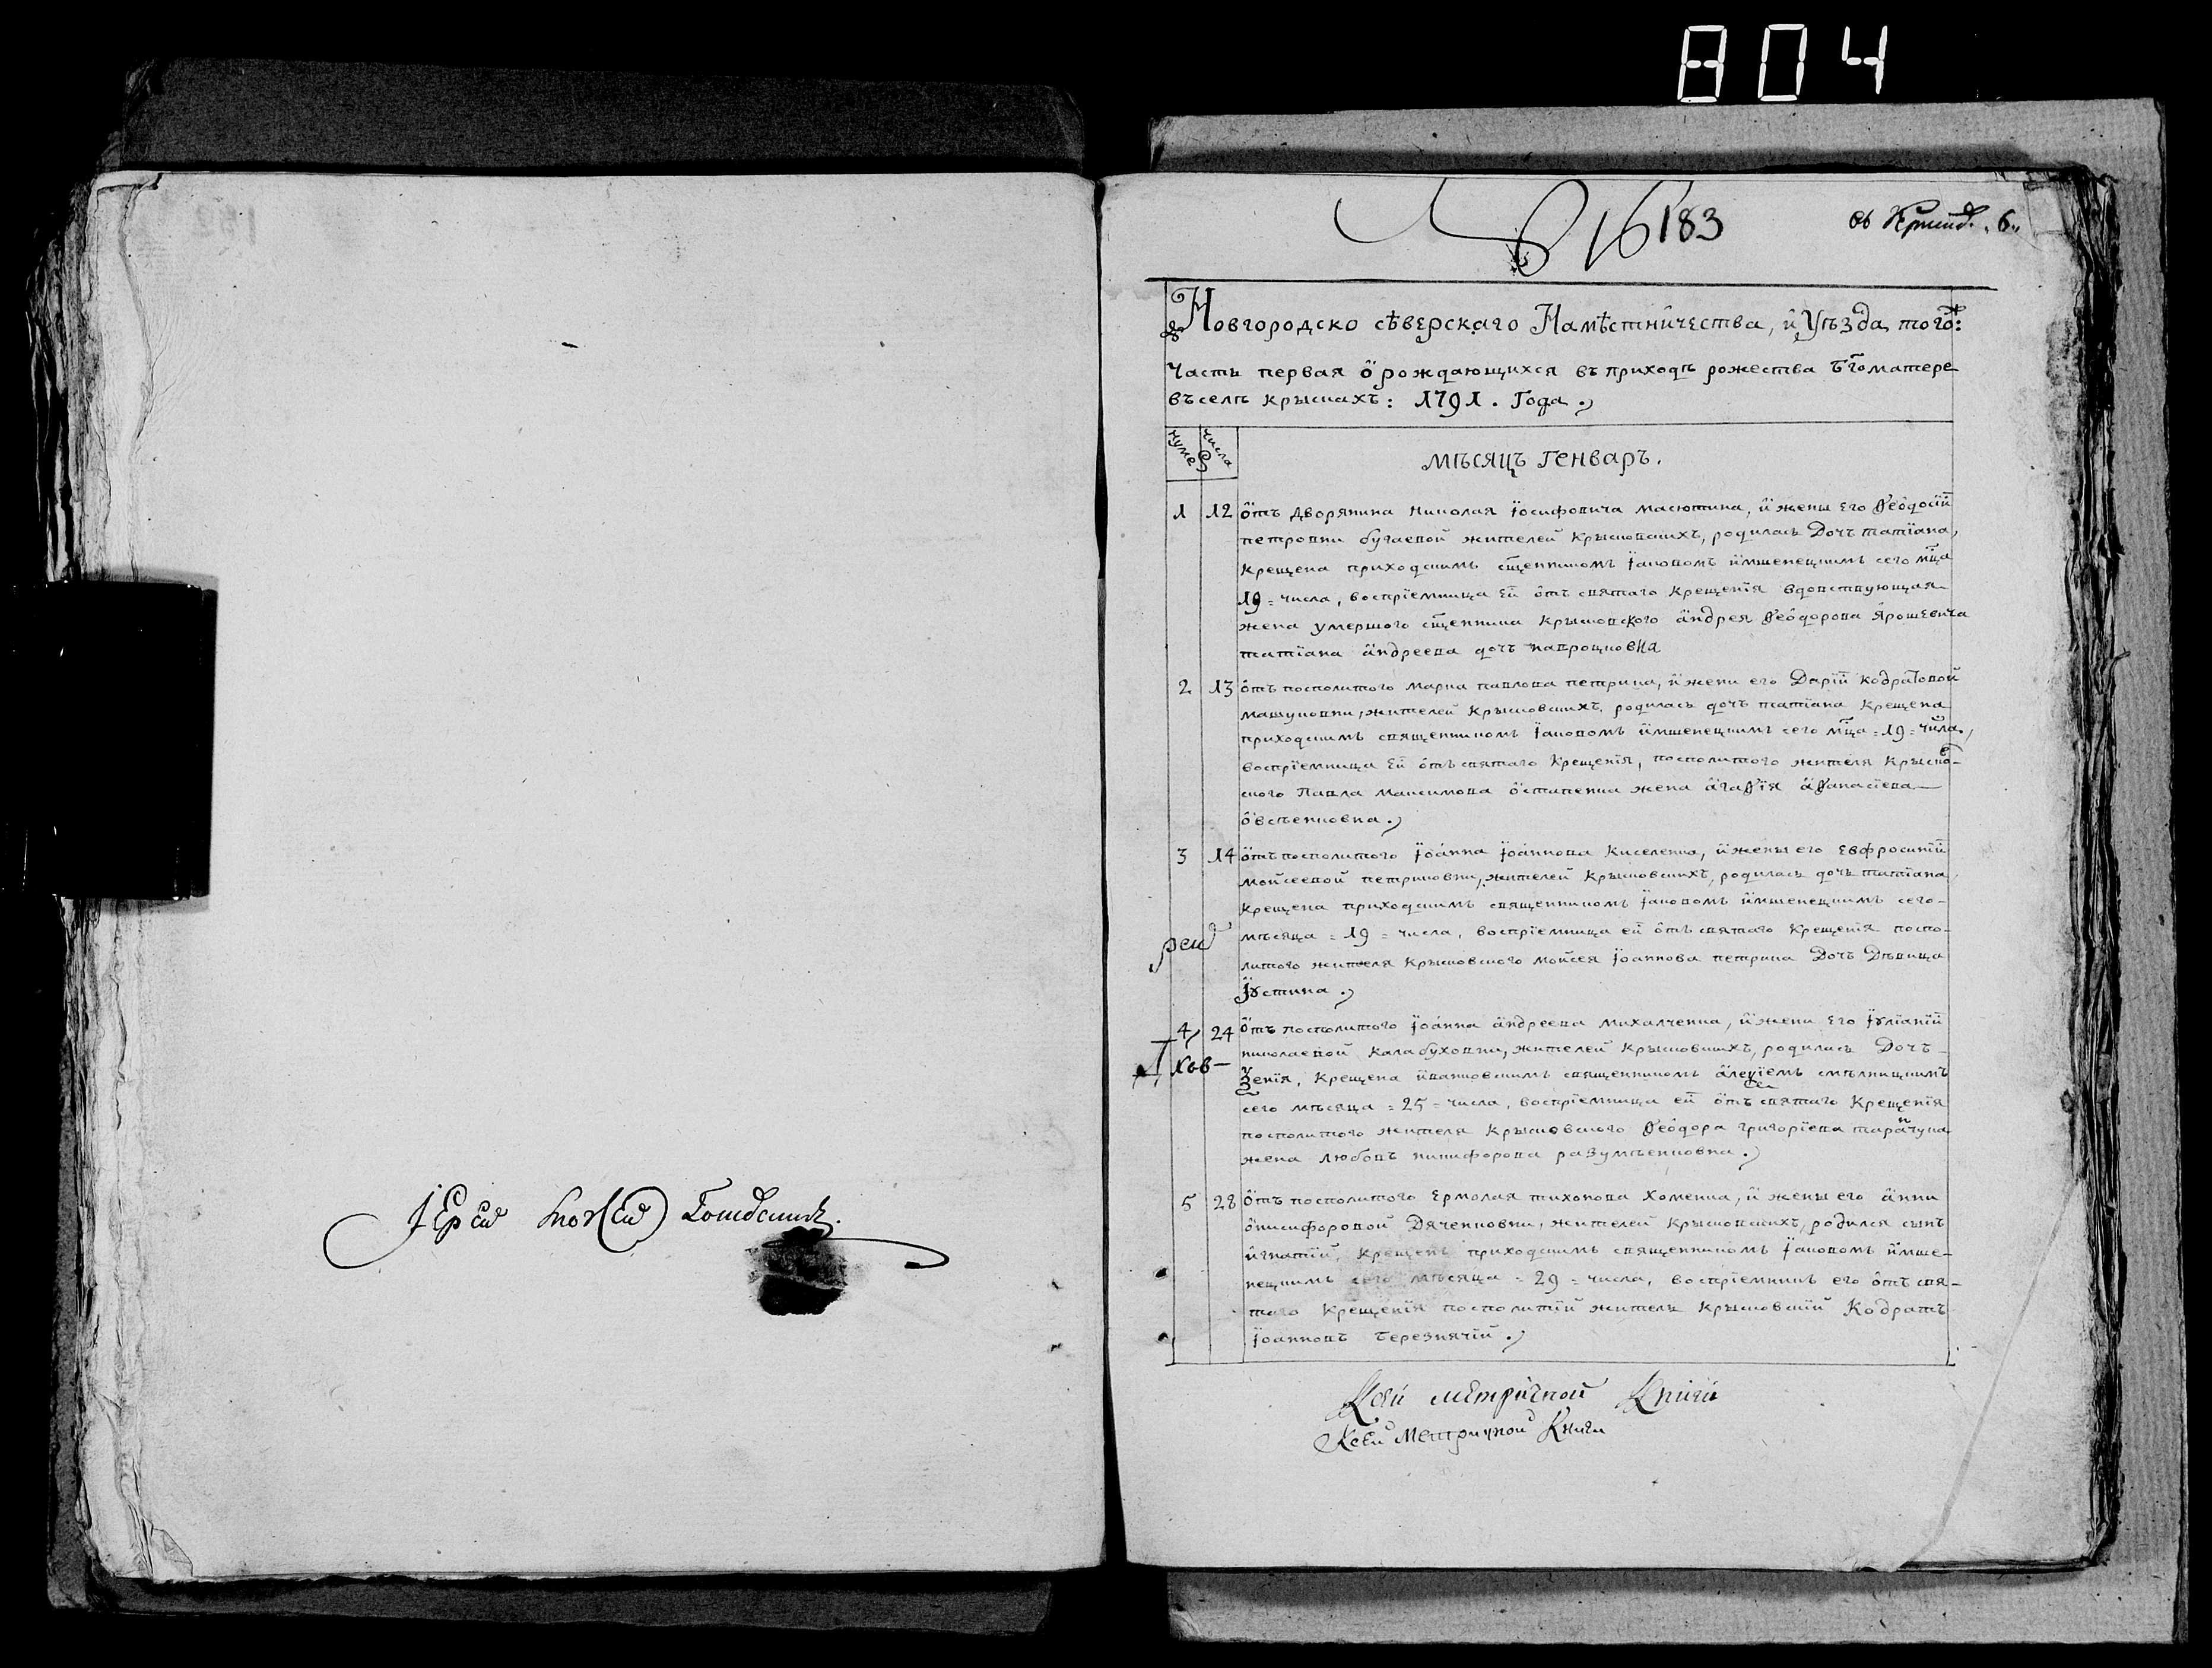 804
183
№ 16
Новгородско сѣверскаго Намѣстничества, и Уѣзда того ж:
Часть первая о рождающихся въ приходѣ рожества Бгоматере
въ селѣ крыскахъ: 1791. Года.
нумер числа
мѣсяцъ Генваръ.
1 12 отъ дворянина николая іосифовича масютина, и жены его Ѳеодосіи
петровни бугаевой жителей крысковскихъ, родилась Дочъ татіана,
крещена приходскимъ сщенникомъ Іаковомъ имшенецкимъ сего мца
19 = числа, воспріемница ей отъ святаго крещенія вдовствующая
жена умершого сщенника крысковского андрея Ѳеодорова Ярошевича
татіана андреева дочъ навроцковна
2 13 отъ посполитого марка павлова петрика, и жени его Даріи кодратовой
мацуковни, жителей крысковскихъ, родилась дочъ татіана крещена
приходскимъ священникомъ Іаковомъ имшенецкимъ сего мца = 19 = числа,
воспріемница ей отъ святаго крещенія, посполитого жителя крысков-
ского Павла максимова остапенка жена агаѳія аѳанасіева
овсѣенковна.
3 14 отъ посполитого Іоанна Іоаннова киселенка, и жены его евфросиніи
мойсеевой петриковни, жителей крысковскихъ, родилась дочъ татіана
крещена приходскимъ священникомъ Іаковомъ имшенецкимъ сего
мѣсяца = 19 = числа, воспріемница ей отъ святаго крещенія поспо-
литого жителя крысковского мойсея Іоаннова петрика Дочъ Дѣвица
Іустина.
4 24 отъ посполитого Іоанна андреева михалченка, и жени его Іуліаніи
николаевой калабуховни, жителей крысковскихъ, родилась Дочъ
Ѯенія, крещена иванковскимъ священникомъ алеѯіемъ смѣлницкимъ
сего мѣсяца = 25 = числа, воспріемница ей отъ святаго крещенія
посполитого жителя крысковского Ѳеодора григоріева таранчука
жена любовъ никифорова разумѣенковна.
5 28 отъ посполитого ермолая тихонова хоменка, и жены его анни
онисифоровой Дяченковни, жителей крысковскихъ, родился сынъ
игнатій, крещенъ приходскимъ священникомъ Іаковомъ имше-
нецкимъ сего мѣсяца = 29 = числа, воспріемникъ его отъ свя-
таго крещенія посполитій житель крысковскій Кодратъ
Іоанновъ Березнячій.
Ксей метричной Книги
Ксей Метричной Книги
Іерей